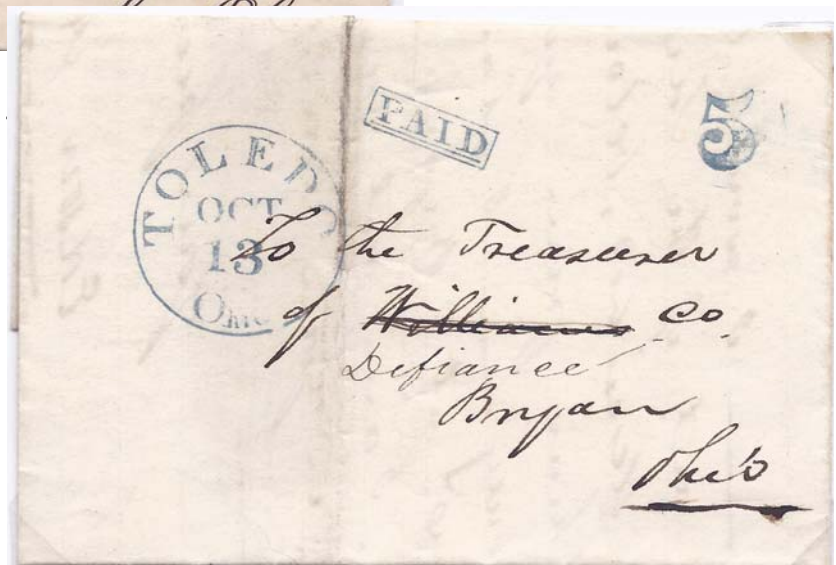 PAID
5
TOLEDO
OCT
13
Ohio
To the Treasurer
of Williams Co.
Defiance
Bryan
Ohio